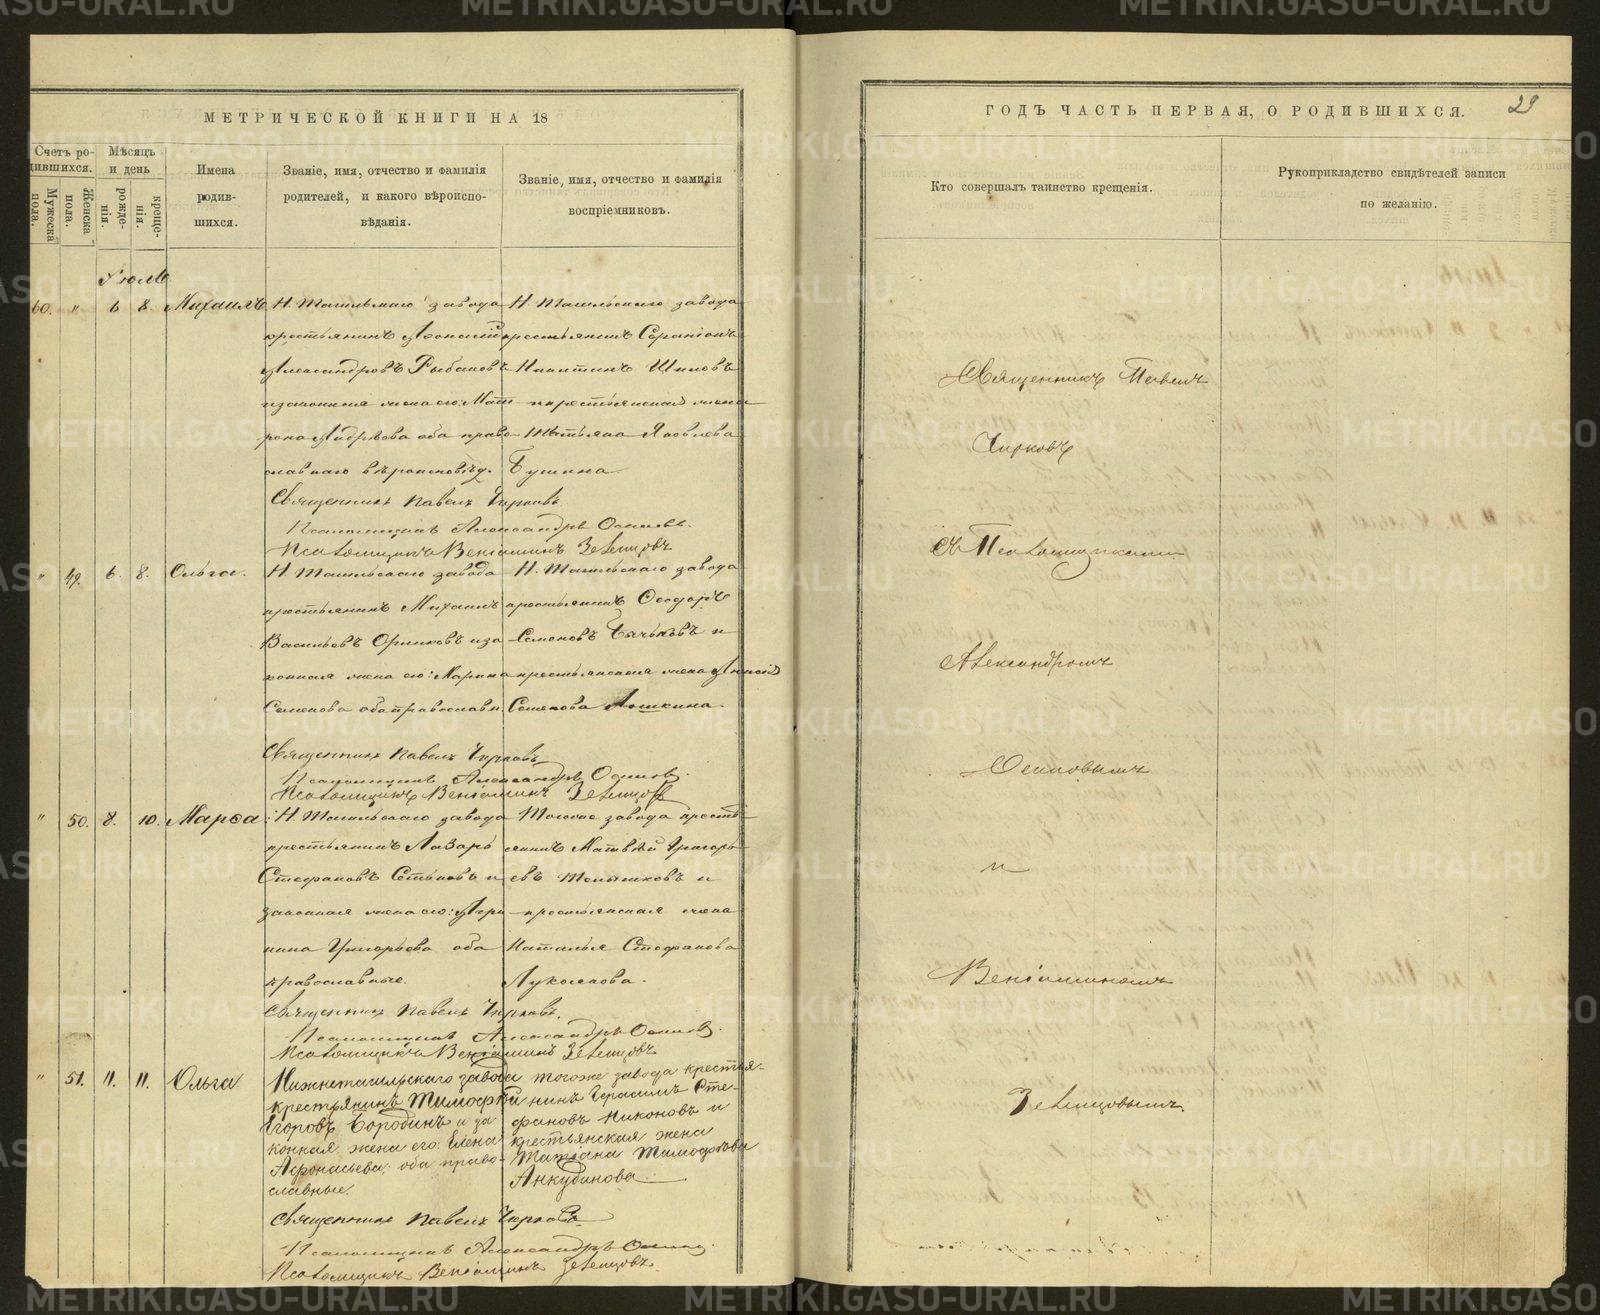 МЕТРИЧЕСКОЙ КНИГИ НА 18
Счетъ ро-
дившихся.
Мужеска пола.
Женска пола.
Мѣсяцъ
и день
рожде-
нія.
креще-
нія.
Имена
родив-
шихся.
Званіе, имя, отчество и фамилія
родителей, и какого вѣроиспо-
вѣданія.
Званіе, имя, отчество и фамилія
воспріемниковъ.
Іюль
60. " 6 8. Михаилъ
Н. Тагильскаго завода
крестьянинъ
Александровъ Рыбаковъ
и законная жена его: Мат
рона Андрѣева оба право
славнаго вѣроисповѣд.
Н. Тагильскаго завода
крестьянинъ
Никитинъ Шиловъ
и крестьянская жена
Татьяна Яковлева
Бушина
Священникъ Павелъ Чирковъ
Псаломщикъ Александръ Осиповъ.
Псаломщикъ Веніаминъ Зеленцовъ
" 49. 6. 8. Ольга.
Н. Тагильскаго завода
крестьянинъ Михаилъ
Васильевъ и за
конная жена его: Марина
Семенова оба православн.
Н. Тагильскаго завода
крестьянинъ Ѳеодоръ
Семеновъ и
крестьянская жена
Семенова
Священникъ Павелъ Чирковъ
Псаломщикъ Александръ Осиповъ.
Псаломщикъ Веніаминъ Зеленцовъ
" 50. 8. 10. Марѳа
Н. Тагильскаго завода
крестьянинъ Лазарь
Стефановъ и
законная жена его: Ири
нина Григорьева оба
православные.
Тогоже завода кресть
янинъ Матвѣй Григорь
евъ и
крестьянская жена
Наталья Стефанова
Лукоянова.
Священникъ Павелъ Чирковъ.
Псаломщикъ Александръ Осиповъ.
Псаломщикъ Веніаминъ Зеленцовъ
" 51. 11. 11. Ольга
Нижнетагильскаго завода
крестьянинъ Тимофѣй
Егоровъ Бородинъ и за
конная жена его: Елена
Афонасьева; оба право-
славные.
тогоже завода крестья-
нинъ Герасимъ Сте-
фановъ Никоновъ и
крестьянская жена
Татіана Тимофѣева
Анкудинова
Священникъ Павелъ Чирковъ
Псаломщикъ Александръ Осиповъ.
Псаломщикъ Веніаминъ Зеленцовъ.
ГОДЪ ЧАСТЬ ПЕРВАЯ, О РОДИВШИХСЯ.
29
Кто совершалъ таинство крещенія.
Рукоприкладство свидѣтелей записи
по желанію.
Священникъ Павелъ
Чирковъ
съ Псаломщиками
Александромъ
Осиповымъ
и
Веніаминомъ
Зеленцовымъ.
METRIKI.GASO-URAL.RU